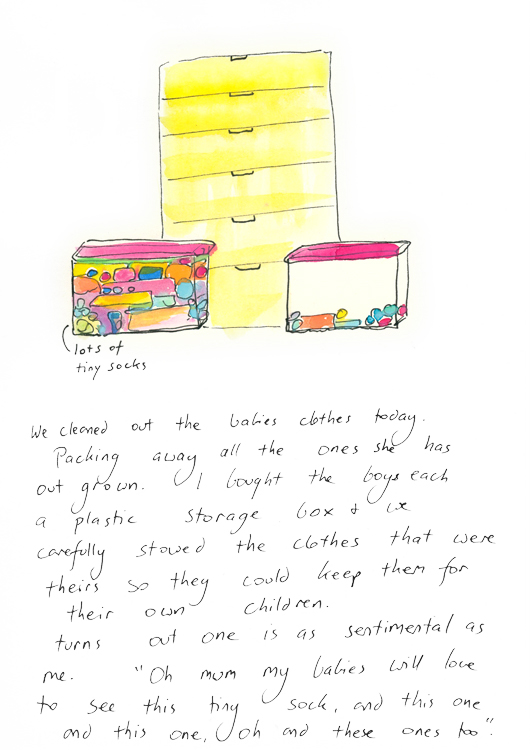 lots of
tiny socks
We cleaned out the babies clothes today.
Packing away all the ones she has
out grown. I bought the boys each
a plastic storage box & we
carefully stowed the clothes that were
theirs so they could keep them for
their own children.
turns out one is as sentimental as
me. "Oh mum my babies will love
to see this tiny sock, and this one
and this one, oh and these ones too".